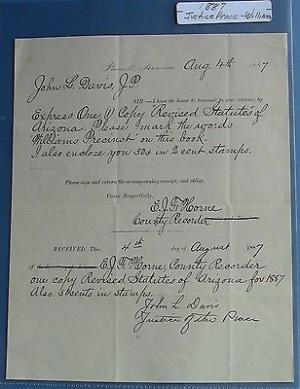 1887
Justice Peace - William
Prescott, Arizona, Aug 4th 1887
John L. Davis, J.P.
SIR:—I have the honor to transmit to your address, by
Express One (1) Copy Revised Statutes of
Arizona. Please mark the words
"Williams Precinct" on this book.
I also enclose you 50c in 2 cent stamps.
Please sign and return the accompanying receipt, and oblige,
Yours Respectfully,
E. J. F. Horne
County Recorder
RECEIVED, This 4th day of August 1887
of E. J. F. Horne, County Recorder
one copy Revised Statutes of Arizona for 1887
Also 50 cents in stamps.
John L. Davis
Justice of the Peace